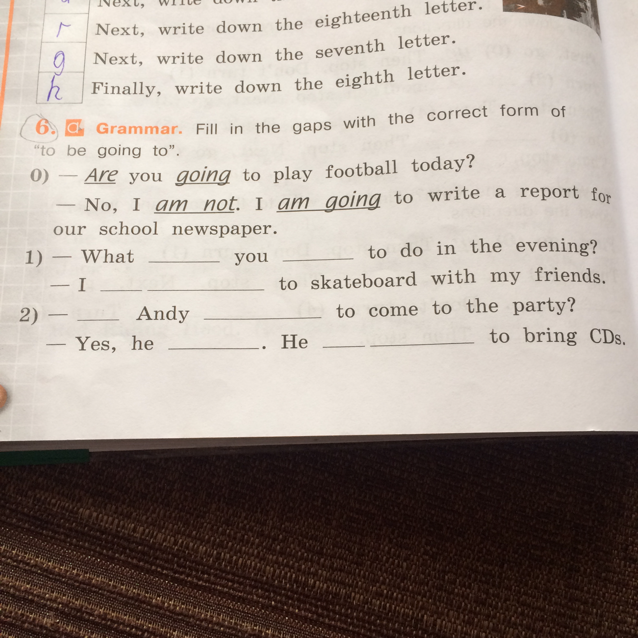 Next, write down
r Next, write down the eighteenth letter.
g Next, write down the seventh letter.
h Finally, write down the eighth letter.
6. a Grammar. Fill in the gaps with the correct form of
"to be going to".
0) — Are you going to play football today?
— No, I am not. I am going to write a report for
our school newspaper.
1) — What ______ you ______ to do in the evening?
— I ______________ to skateboard with my friends.
2) — ____ Andy __________ to come to the party?
— Yes, he ________. He ____ _________ to bring CDs.